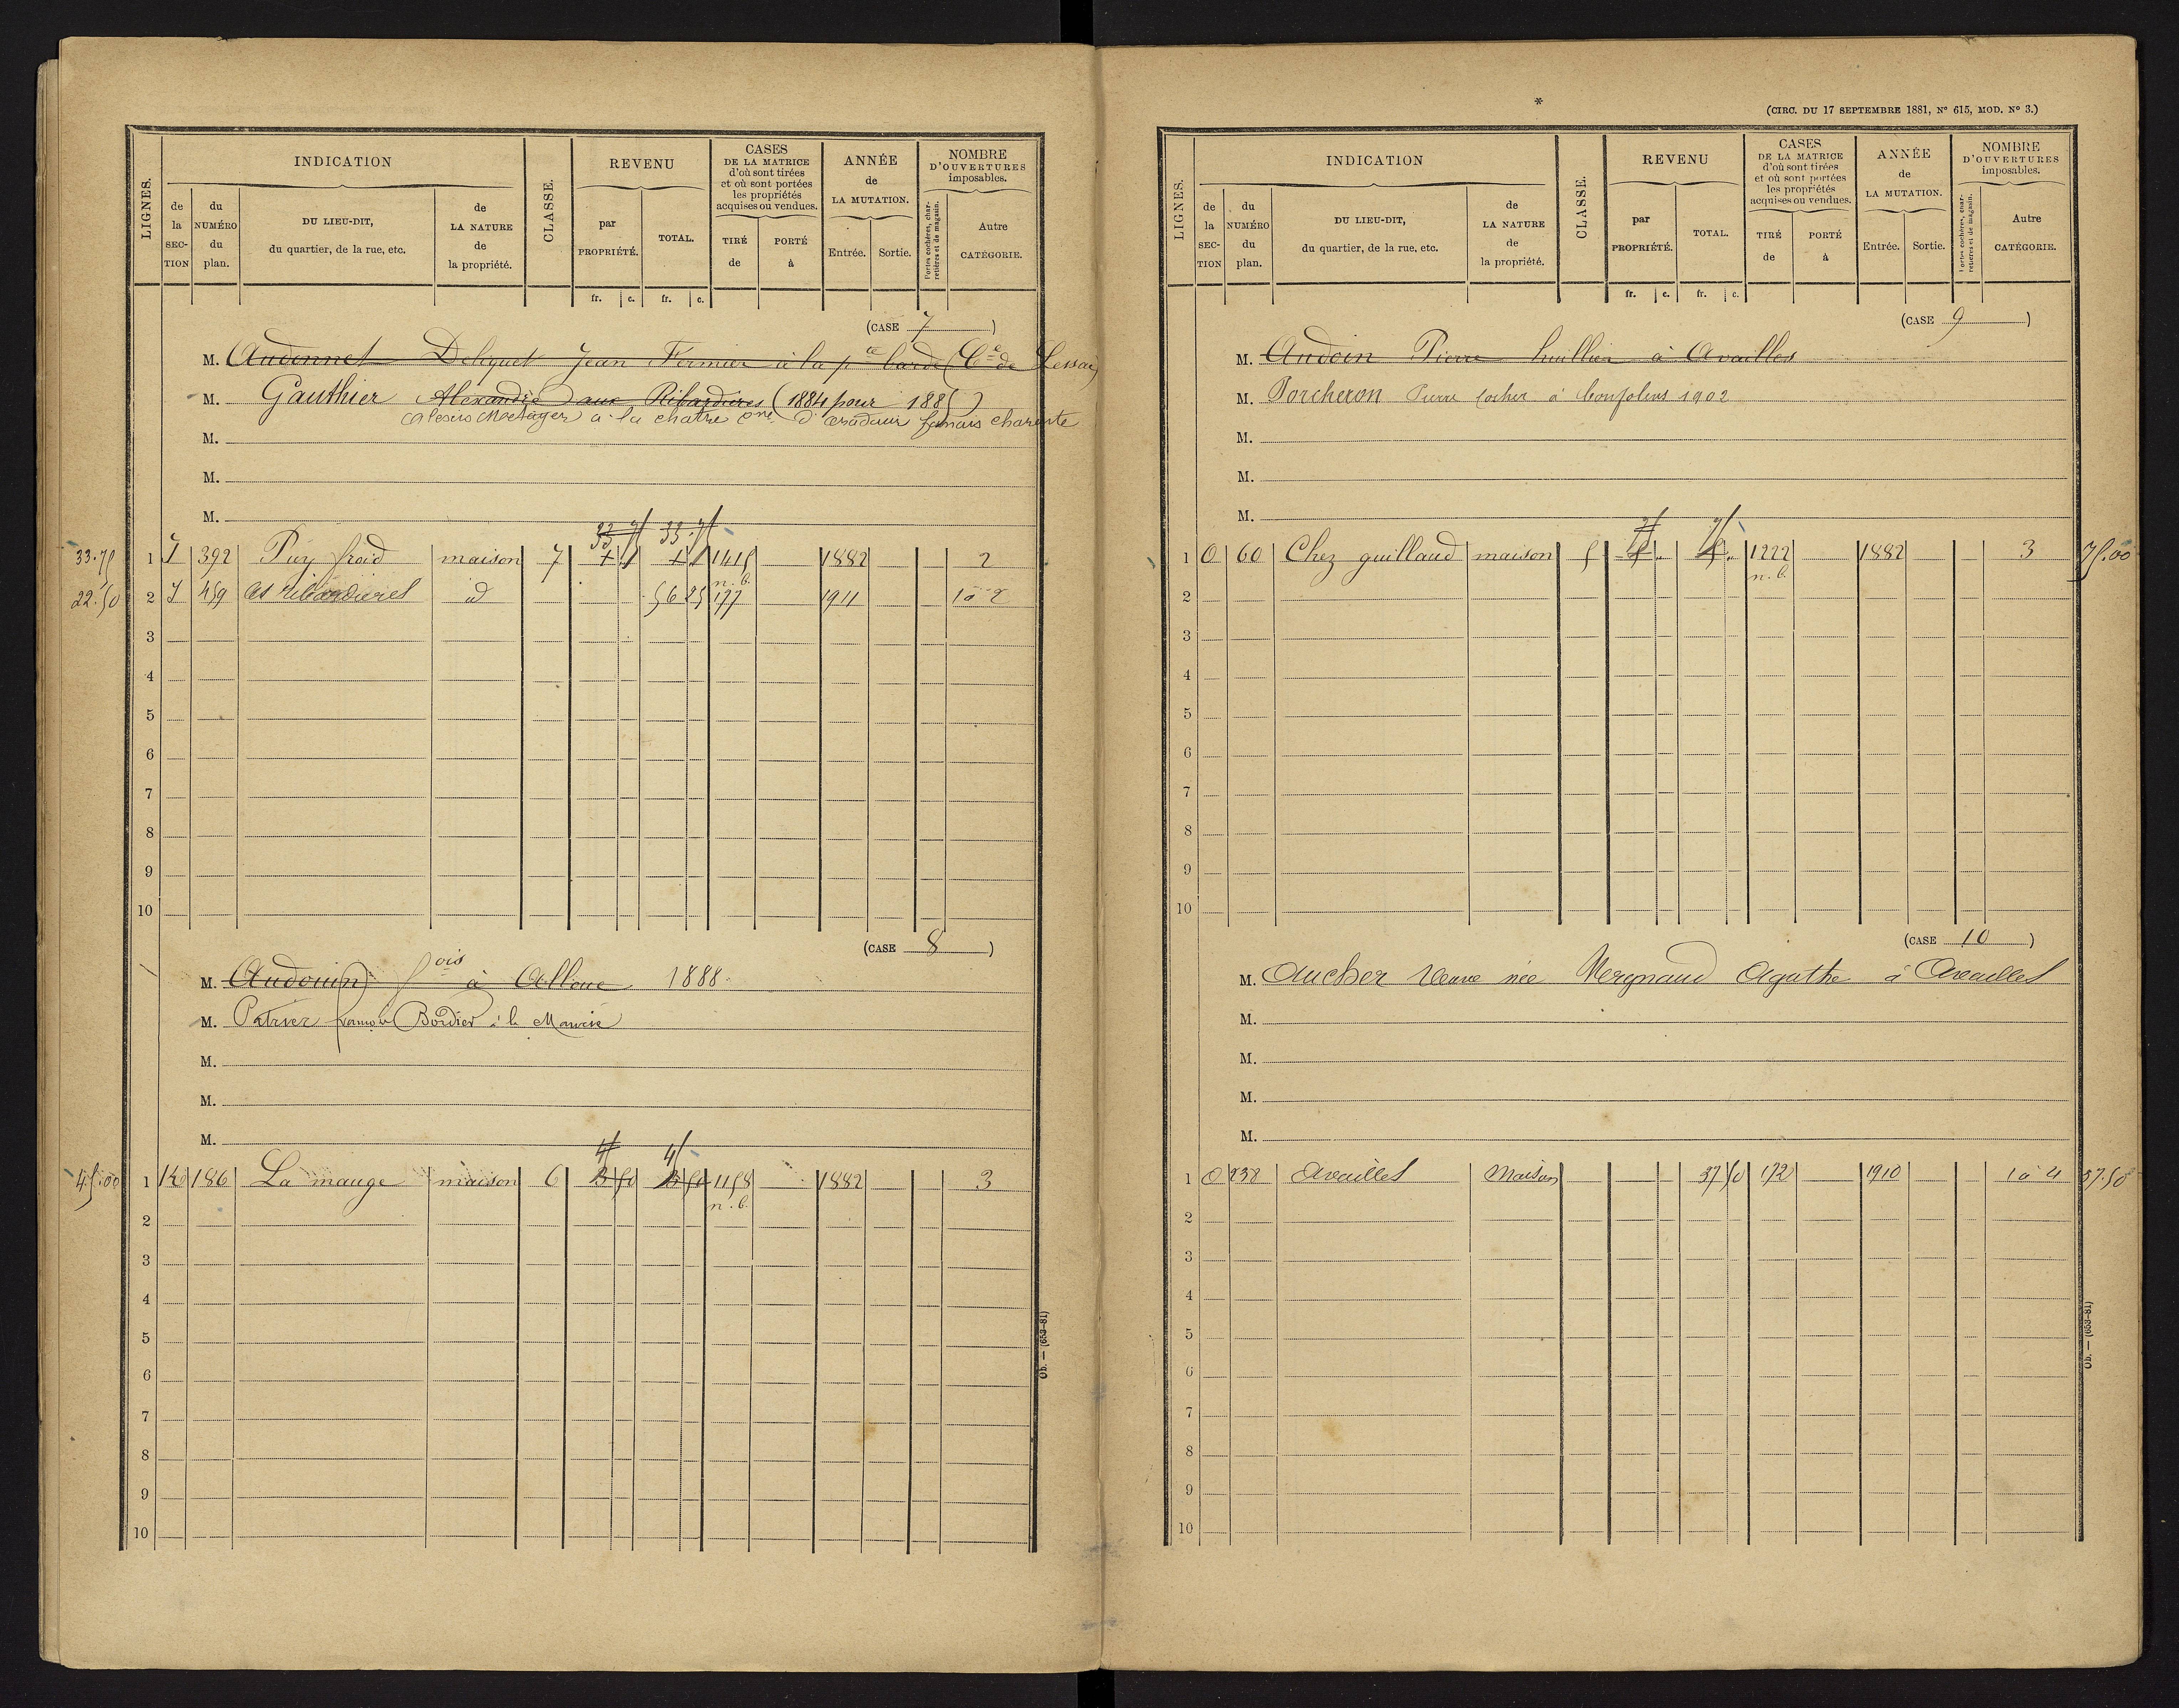 LIGNES.
INDICATION
de la SECTION
du NUMÉRO du plan.
DU LIEU-DIT, du quartier, de la rue, etc.
de LA NATURE de la propriété.
CLASSE.
REVENU
par PROPRIÉTÉ.
TOTAL.
CASES DE LA MATRICE d'où sont tirées et où sont portées les propriétés acquises ou vendues.
TIRÉ de
PORTÉ à
ANNÉE de LA MUTATION.
Entrée.
Sortie.
NOMBRE D'OUVERTURES imposables.
Portes cochères, charretières et de magasin.
Autre CATÉGORIE.
fr. c. fr. c.
(CASE 7)
M. Audonnet Deliquet Jean Fermier à la pce barde (Cne de Lessac)
M. Gauthier Alexandre aux Ribardières (1884 pour 1885)
Alexis Métayer à la chatre cne d'
charente
M.
M.
M.
33 75 33.75
33.75 1 J 392 Puy froid maison 7 1415 1882 2
n.b.
22.50 2 J 459 Les ribardières id 56 25 177 1911 1 à 2
3
4
5
6
7
8
9
10
(CASE 8)
M. Audouin fois à Alloue 1888
M. Patrier françois Bordier à la
M.
M.
M.
45 45
45.00 1 K 186 La mauge maison 6 50 50 1158 1882 3
n.b.
2
3
4
5
6
7
8
9
10
Ob. — (653-81)
*
(CIRC. DU 17 SEPTEMBRE 1881, N° 615, MOD. N° 3.)
LIGNES.
INDICATION
de la SECTION
du NUMÉRO du plan.
DU LIEU-DIT, du quartier, de la rue, etc.
de LA NATURE de la propriété.
CLASSE.
REVENU
par PROPRIÉTÉ.
TOTAL.
CASES DE LA MATRICE d'où sont tirées et où sont portées les propriétés acquises ou vendues.
TIRÉ de
PORTÉ à
ANNÉE de LA MUTATION.
Entrée.
Sortie.
NOMBRE D'OUVERTURES imposables.
Portes cochères, charretières et de magasin.
Autre CATÉGORIE.
fr. c. fr. c.
(CASE 9)
M. Audoin Pierre huillier à Availles
M. Porcheron Pierre cocher à Confolens 1902
M.
M.
M.
75 75
1 O 60 Chez guillaud maison 5 1222 1882 3 75.00
n.b.
2
3
4
5
6
7
8
9
10
(CASE 10)
M. Aucher Veuve née Vergnaud Agathe à Availles
M.
M.
M.
M.
1 O 238 Availles Maison 37 50 172 1910 1 à 4 37.50
2
3
4
5
6
7
8
9
10
Ob. — (653-81)